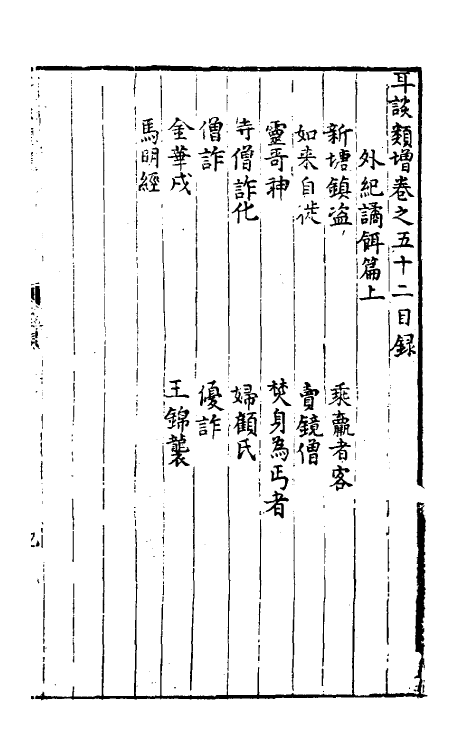 耳談類增卷之五十二目録
外紀譎餌篇上
新塘鎮盜 乘羸者客
如来自徙 賣鏡僧
靈哥神 焚身為丐者
寺僧詐化 婦顧氏
僧詐 優詐
金華戍 王錦襲
馬明經